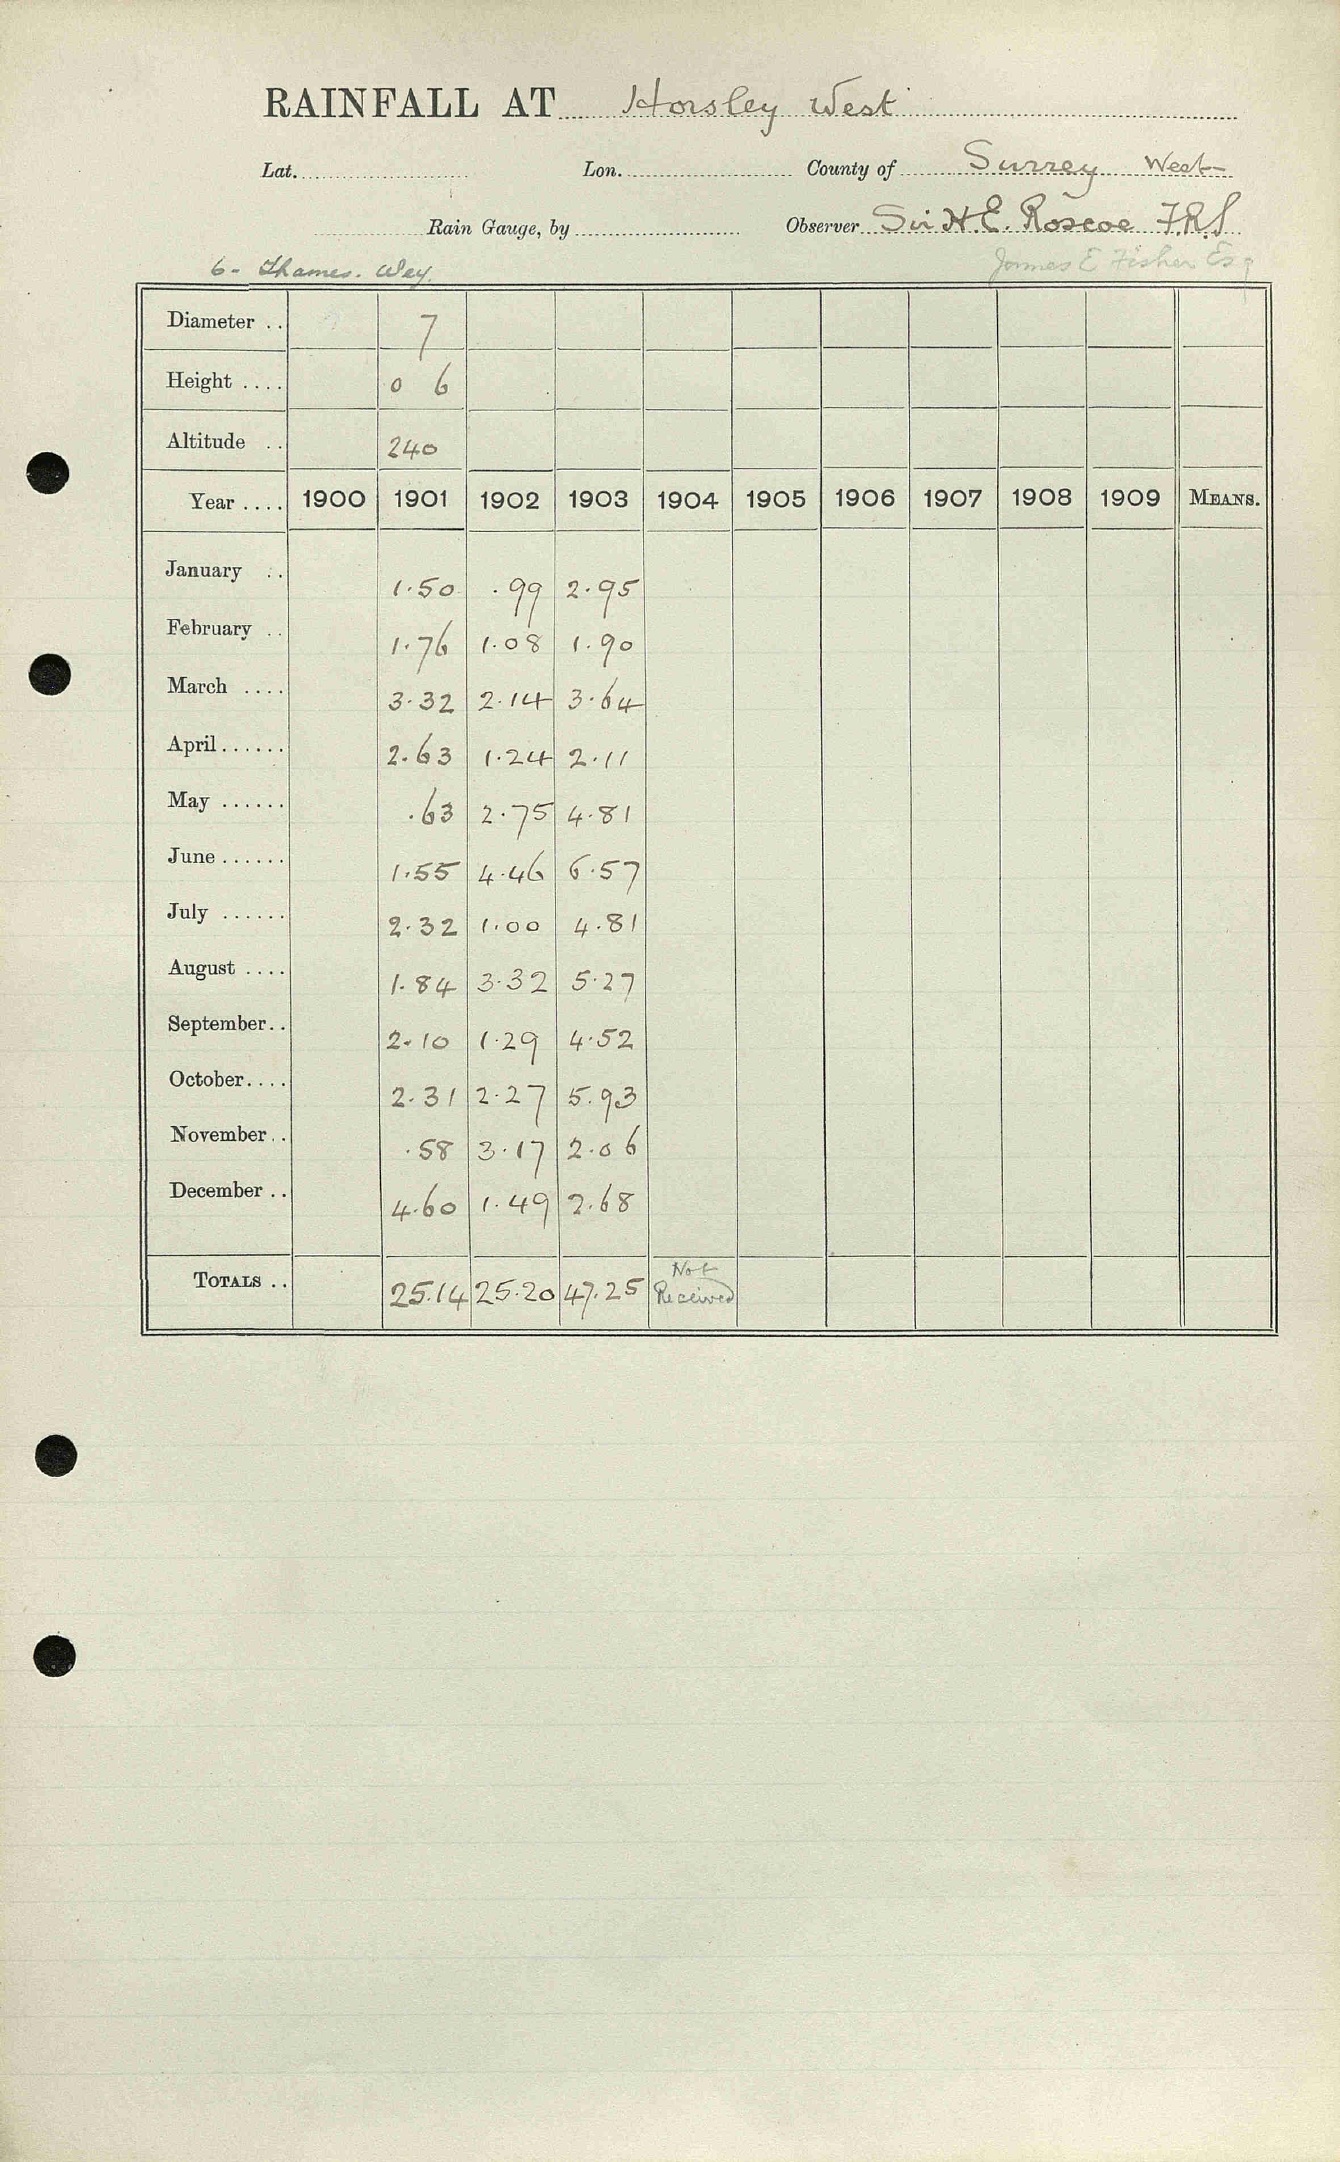 RAINFALL AT Horsley West
Lat. Lon. County of Surrey West
Rain Gauge, by Observer Sir H.E. Roscoe F.R.S
6 - Thames. Wey. James E Fisher Esq
Diameter .. 7
Height .... 0 6
Altitude .. 240
Year .... 1900 1901 1902 1903 1904 1905 1906 1907 1908 1909 MEANS.
January .. 1.50 .99 2.95
February .. 1.76 1.08 1.90
March .... 3.32 2.14 3.64
April...... 2.63 1.24 2.11
May ...... .63 2.75 4.81
June...... 1.55 4.46 6.57
July ...... 2.32 1.00 4.81
August .... 1.84 3.32 5.27
September.. 2.10 1.29 4.52
October.... 2.31 2.27 5.93
November.. .58 3.17 2.06
December .. 4.60 1.49 2.68
TOTALS .. 25.14 25.20 47.25 Not Received